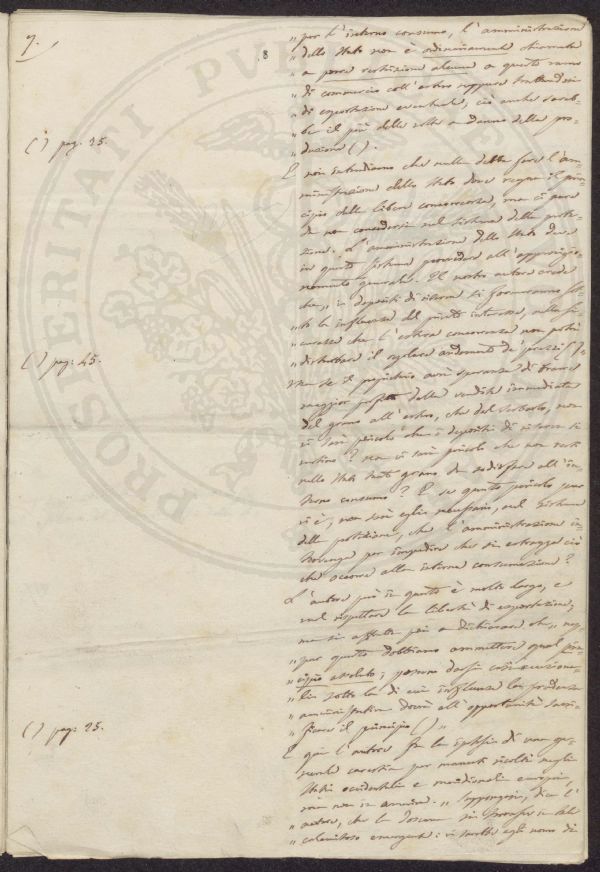 7.
8
„ per l'interno consumo, l'amministrazione
„ dello Stato non è ordinariamente chiamata
„ a porre restrizione alcuna a questo ramo
„ di commercio coll'estero neppure trattandosi
„ di esportazione eventuale, ciò anche sareb-
„ be il più delle volte a danno della pro-
„ duzione ( ).
( ) pag. 25.
E noi intendiamo che nulla debba fare l'am-
ministrazione dello Stato dove regna il prin-
cipio della libera concorrenza, ma ci pare
da non concedersi nel sistema della prote-
zione. L'amministrazione dello Stato deve
in questo sistema provvedere all'approvvigio-
namento generale. Il nostro autore crede
che „ i depositi di riserva si formeranno sot-
„ to la influenza del privato interesse, nella si-
„ curezza che l'estera concorrenza non potrà
„ disturbare il regolare andamento de' prezzi ( ).
( ) pag. 45.
Ma se il proprietario avrà speranza di trarre
maggior profitto dalla vendita immediata
del grano all'estero, che dal serbarlo, non
vi sarà pericolo che i depositi di riserva si
vuotino? Non vi sarà pericolo che non resti
nello Stato tanto grano da sodisfare all'in-
terno consumo? E se questo pericolo pure
vi è, non sarà egli necessario, nel sistema
della protezione, che l'amministrazione in-
tervenga per impedire che si estragga ciò
che occorre alla interna consumazione?
L'autore poi in questo è molto largo, e
vuol rispettare la libertà di esportazione;
ma si affretta poi a dichiarare che „ nep-
„ pur questo dobbiamo ammettere qual prin-
„ cipio assoluto; possono darsi casi eccezionali
„ sotto la di cui influenza la prudenza
„ amministrativa dovrà all'opportunità sacri-
„ ficare il principio ( ) „
( ) pag. 25.
E qui l'autore fa la ipotesi di una ge-
nerale carestia per mancati raccolti negli
Stati occidentali e meridionali europei,
„ Suppongasi, dice l'
„ autore, che la Toscana si trovasse in tale
„ calamitosa emergenza: